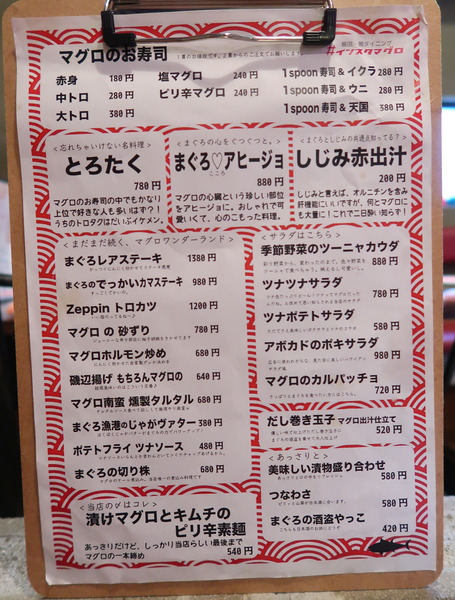 マグロのお寿司
1貫のお値段です。2貫からのご注文でお願いします
飯田 鮪ダイニング
#インスタマグロ
赤身 180円
中トロ 280円
大トロ 380円
塩マグロ 240円
ピリ辛マグロ 240円
1spoon寿司&イクラ 280円
1spoon寿司&ウニ 280円
1spoon寿司&天国 380円
<忘れちゃいけない名料理>
とろたく
780円
マグロのお寿司の中でもかなり
上位で好きな人も多いはず?!
うちのトロタクはだいぶイケメン。
<まぐろの心をぐつぐつと。>
まぐろ♡アヒージョ
こころ
880円
マグロの心臓という珍しい部位
をアヒージョに。おしゃれで可
愛いくて、心のこもった料理。
<まぐろとしじみの共通点知ってる?>
しじみ赤出汁
200円
しじみと言えば、オルニチンを含み
肝機能にいいですが、何とマグロに
も大量に!これで二日酔い知らず!
<まだまだ続く、マグロワンダーランド>
まぐろレアステーキ 1380円
まぐろのでっかいカマステーキ 980円
Zeppin トロカツ 1200円
マグロ の 砂ずり 780円
マグロホルモン炒め 680円
磯辺揚げ もちろんマグロの 640円
マグロ南蛮 燻製タルタル 680円
まぐろ漁港のじゃがヴァター 380円
ポテトフライ ツナソース 480円
まぐろの切り株 680円
<サラダはこちら>
季節野菜のツーニャカウダ
880円
ツナツナサラダ
780円
ツナポテトサラダ
580円
アボカドのポキサラダ
980円
マグロのカルパッチョ
720円
だし巻き玉子 マグロ出汁仕立て
520円
<あっさりと>
美味しい漬物盛り合わせ
580円
つなわさ
580円
まぐろの酒盗やっこ
420円
<当店の〆はコレ>
漬けマグロとキムチの
ピリ辛素麺
あっさりだけど、しっかり当店らしい最後まで
マグロの一本締め 540円